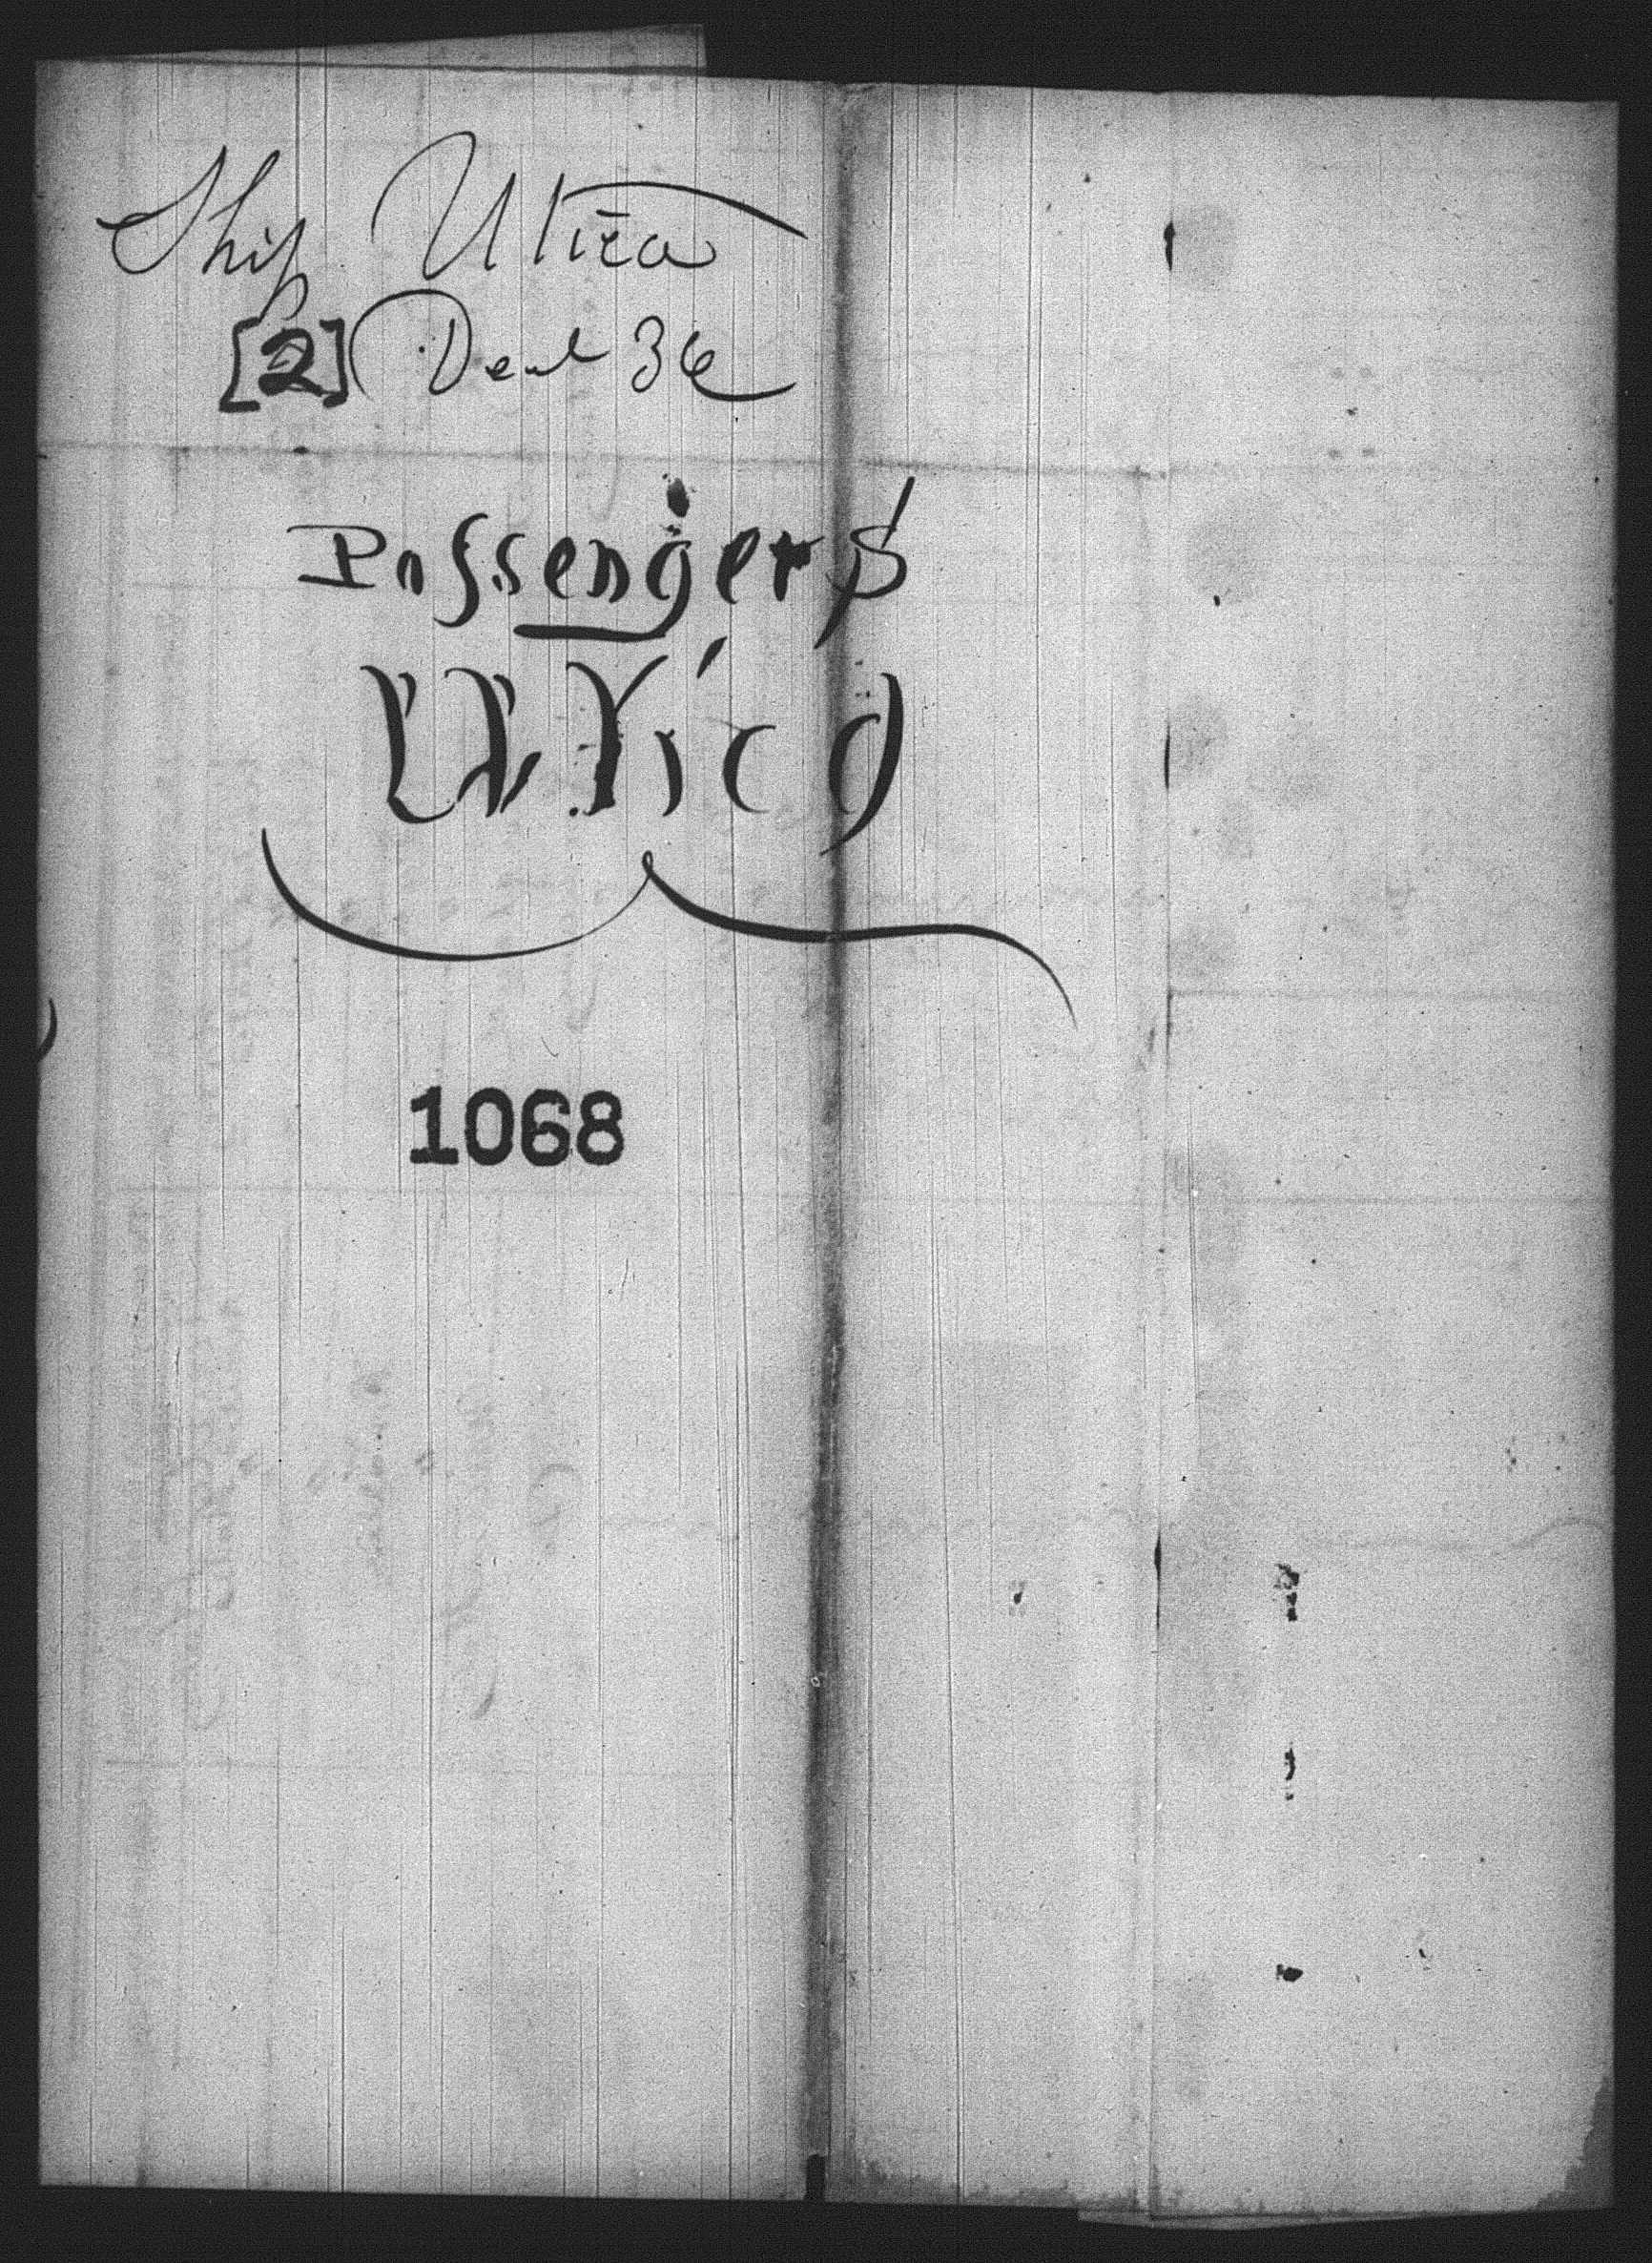 Ship Utica
[2] Dec 36
Passengers
Utica
1068